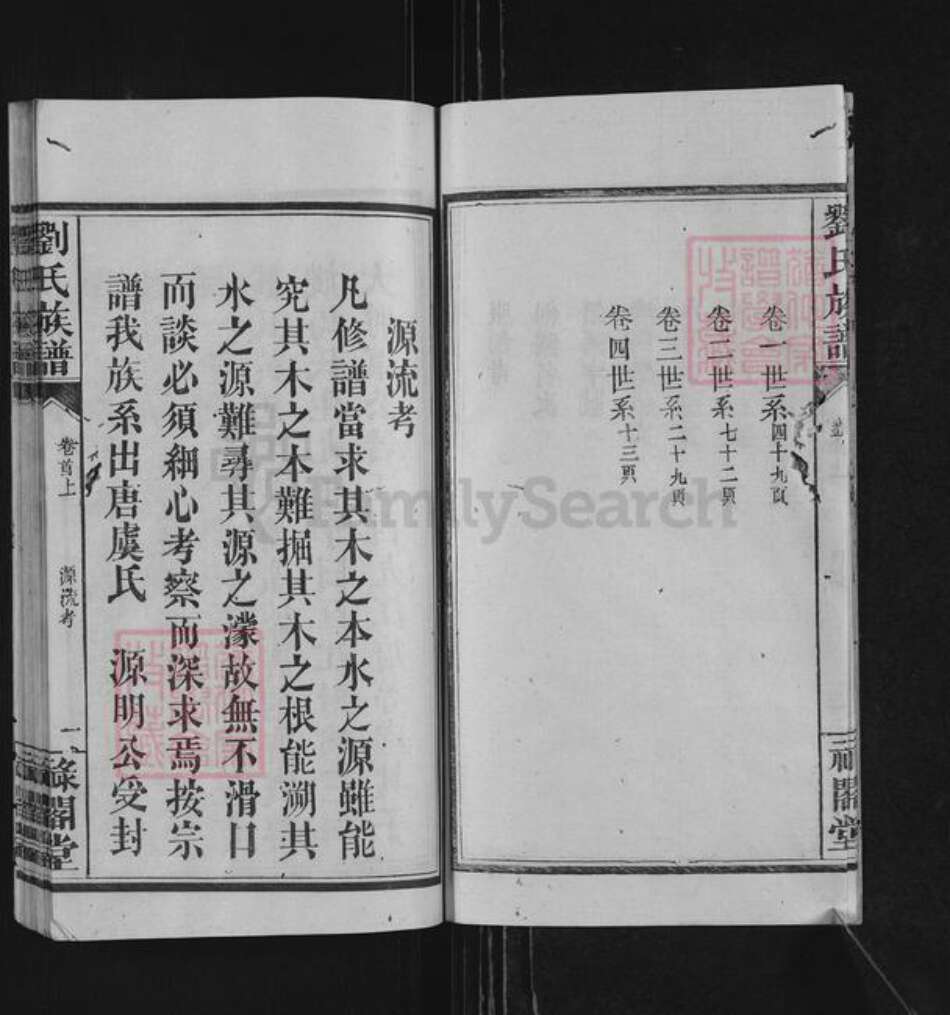 劉氏族譜
卷一世系四十九頁
卷二世系七十二頁
卷三世系二十九頁
卷四世系十三頁
祿閣堂
源流考
凡修譜當求其木之本水之源雖能
究其木之本難掘其木之根能溯其
水之源難尋其源之濛故無不滑口
而談必須細心考察而深求焉按宗
譜我族系出唐虞氏 源明公受封
劉氏族譜
卷首上
源流考
一
祿閣堂
FamilySearch